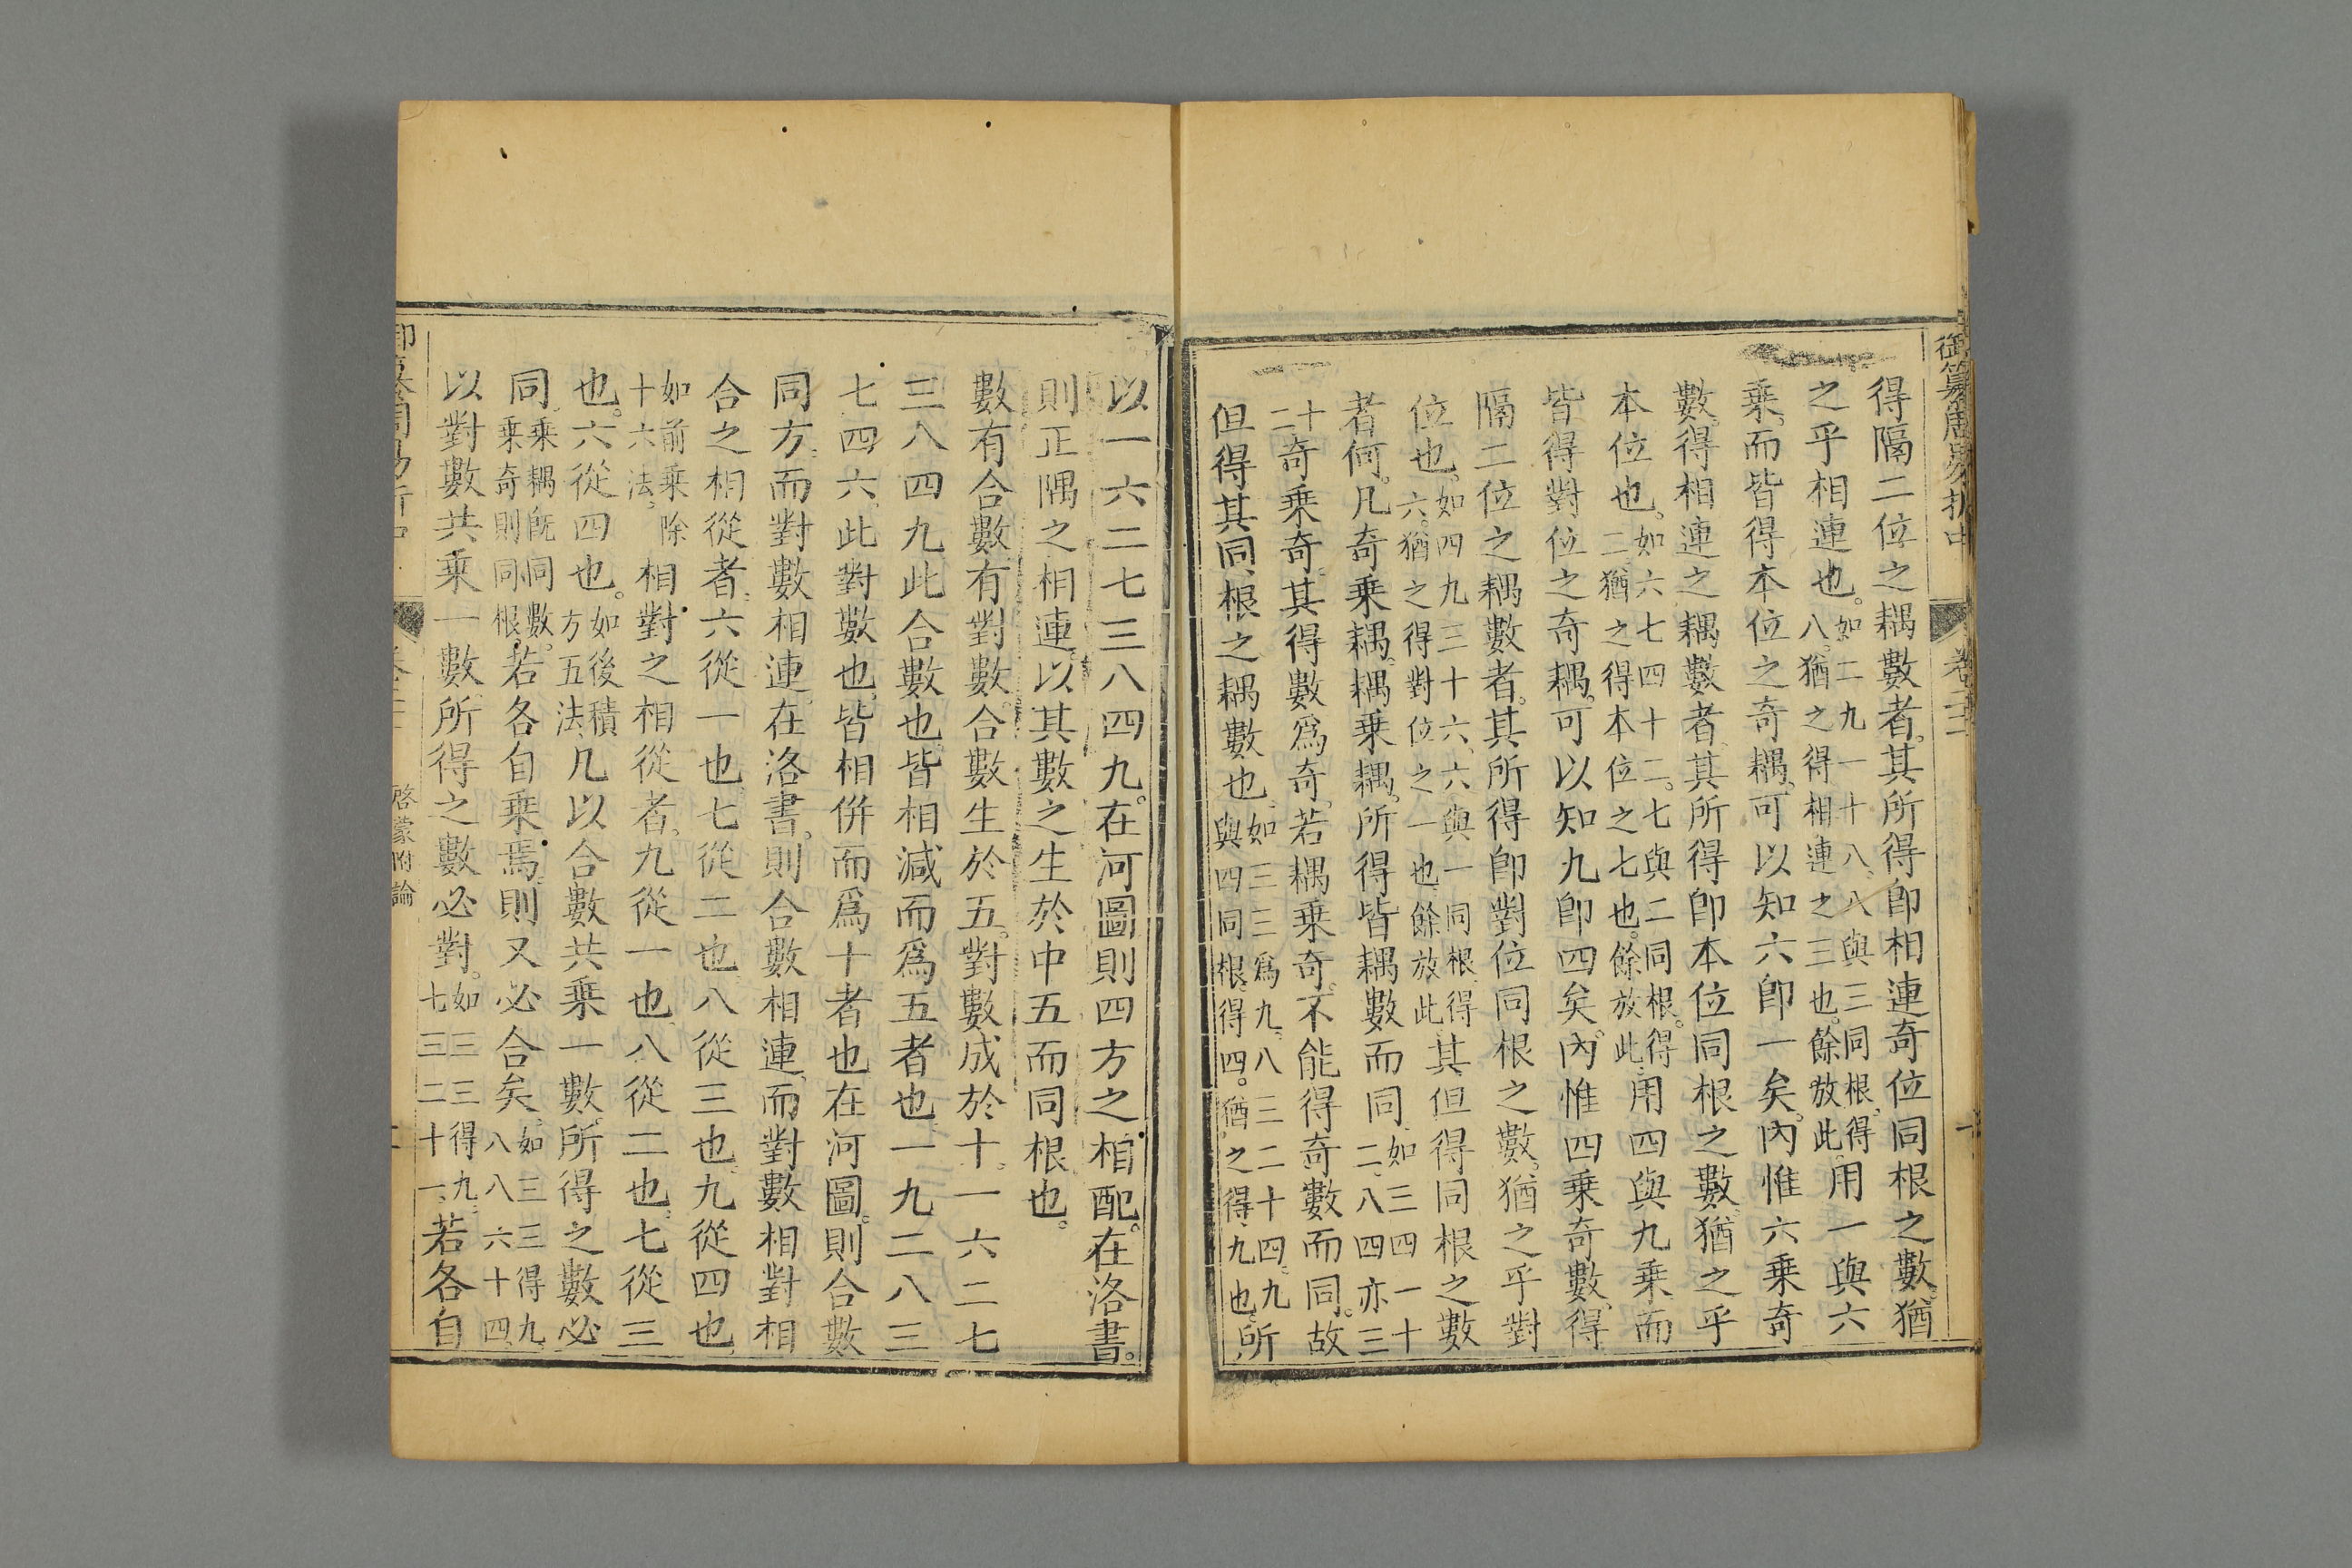 御纂周易折中
卷二
得隔二位之耦數者。其所得卽相連奇位同根之數。猶
之乎相連也。如二九一十八、八與三同根、得八。猶之得相連之三也。餘放此。用一與六
乘。而皆得本位之奇耦。可以知六卽一矣。內惟六乘奇
數。得相連之耦數者。其所得卽本位同根之數。猶之乎
本位也。如六七四十二。七與二同根。得二。猶之得本位之七也。餘放此。用四與九乘。而
皆得對位之奇耦。可以知九卽四矣。內惟四乘奇數、得
隔二位之耦數者。其所得卽對位同根之數。猶之乎對
位也。如四九三十六、六與一同根、得六。猶之得對位之一也。餘放此。其但得同根之數
者何。凡奇乘耦。耦乘耦。所得皆耦數而同。如三四一十二、八四亦三
十二奇乘奇。其得數爲奇。若耦乘奇。不能得奇數而同。故
但得其同根之耦數也。如三三爲九。八三二十四。九與四同根。得四。猶之得九也。所
以一六二七三八四九。在河圖則四方之相配。在洛書。
則正隅之相連。以其數之生於中五而同根也。
數有合數。有對數。合數生於五。對數成於十。一六二七
三八四九此合數也。皆相減而爲五者也。一九二八三
七四六、此對數也、皆相併而爲十者也在河圖。則合數
同方。而對數相連。在洛書。則合數相連。而對數相對相
合之相從者。六從一也。七從二也。八從三也。九從四也。
如前乘除十六法。相對之相從者。九從一也。八從二也。七從三
也。六從四也。如後積方五法。凡以合數共乘一數。所得之數必
同。乘耦旣同數。乘奇則同根。若各自乘焉。則又必合矣。如三三得九、八八六十四、
以對數共乘一數。所得之數必對。如三三得九。七三二十一。若各自
啓蒙附論